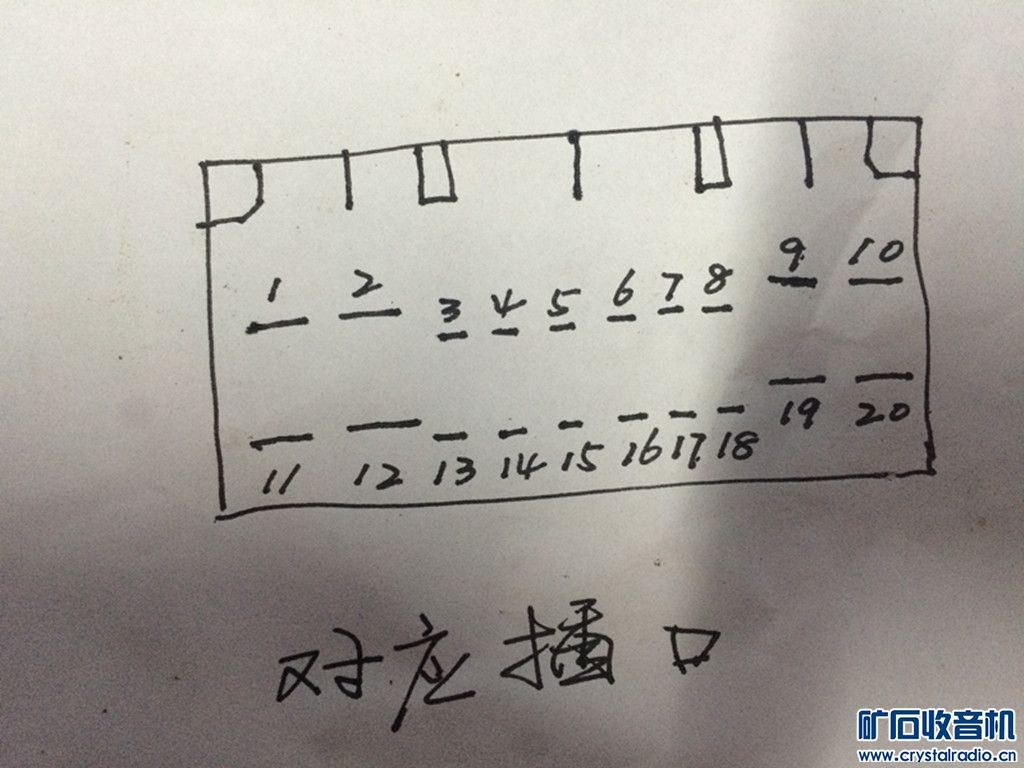 1 2 3 4 5 6 7 8 9 10
11 12 13 14 15 16 17 18 19 20
对应插口
矿石收音机
www.crystalradio.cn